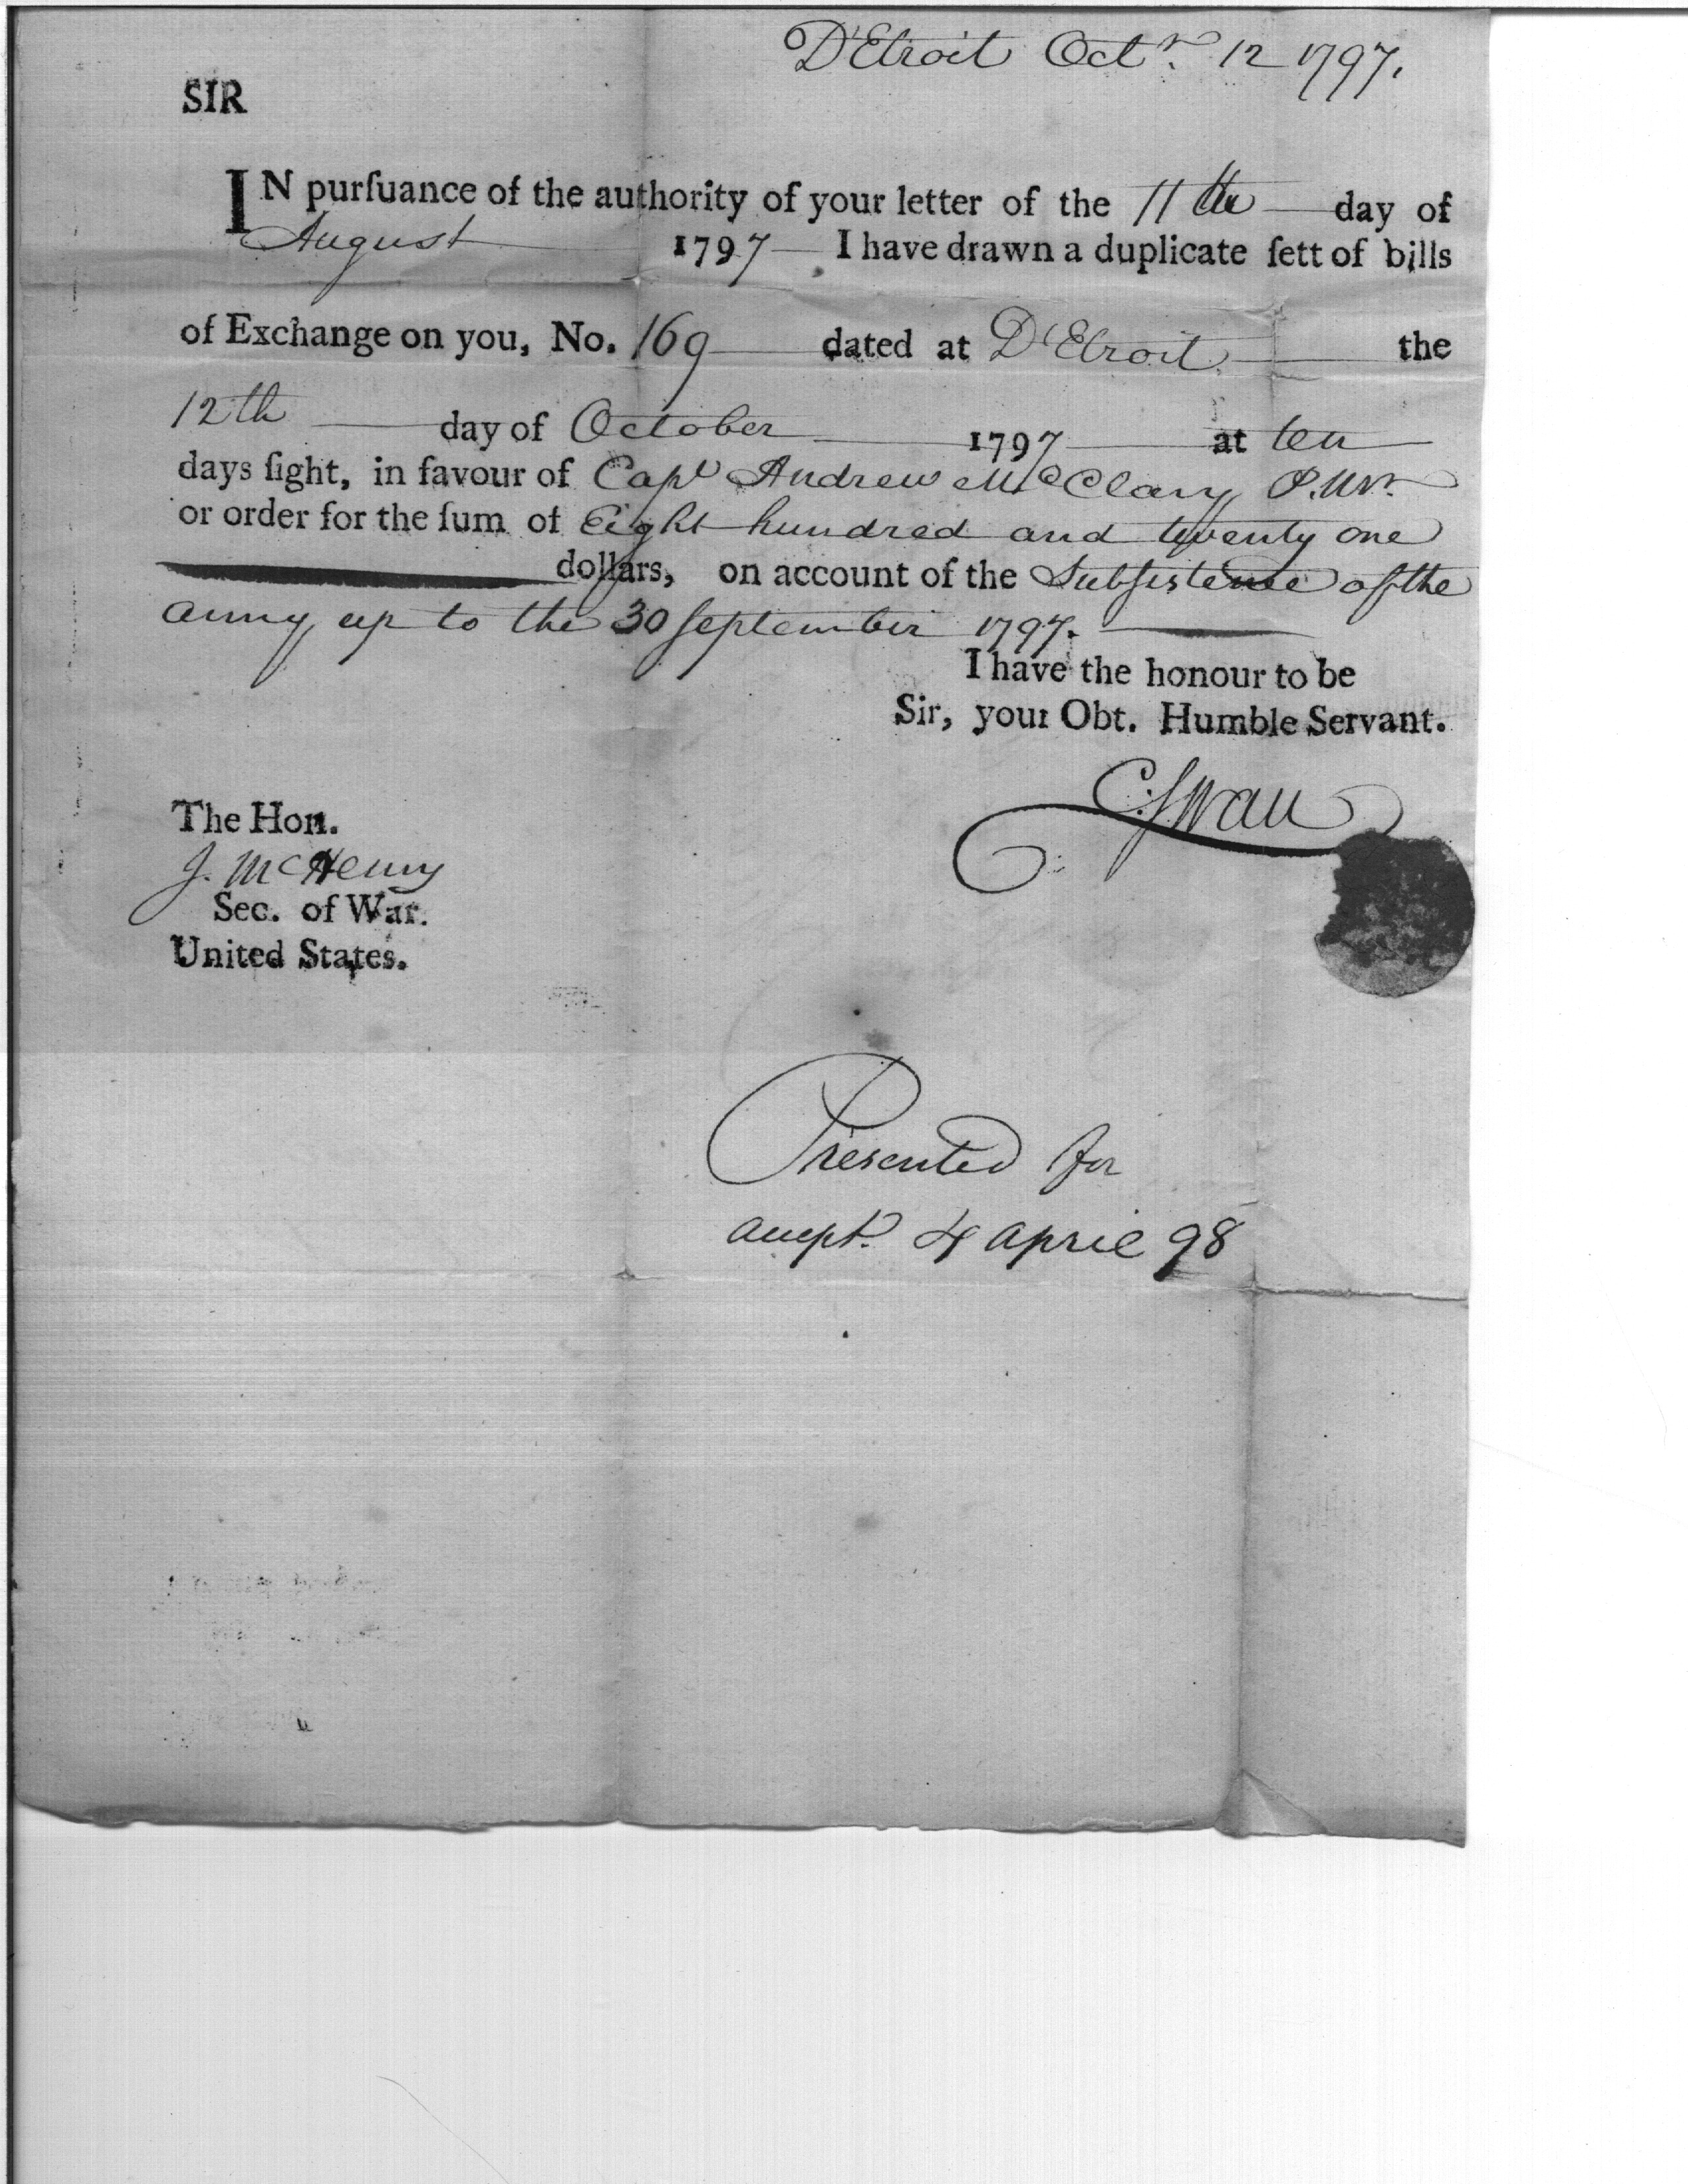 D'Etroit Octr. 12 1797.
SIR
IN purſuance of the authority of your letter of the 11th day of
August 1797 I have drawn a duplicate ſett of bills
of Exchange on you, No. 169 dated at D'Etroit the
12th day of October 1797 at ten
days ſight, in favour of Capt Andrew McClary P.Mr.
or order for the ſum of Eight hundred and twenty one
dollars, on account of the Subſistence of the
army up to the 30 September 1797.
I have the honour to be
Sir, your Obt. Humble Servant.
C. Swan
The Hon.
J. McHenry
Sec. of War.
United States.
Presented for
accept. 4 April 98